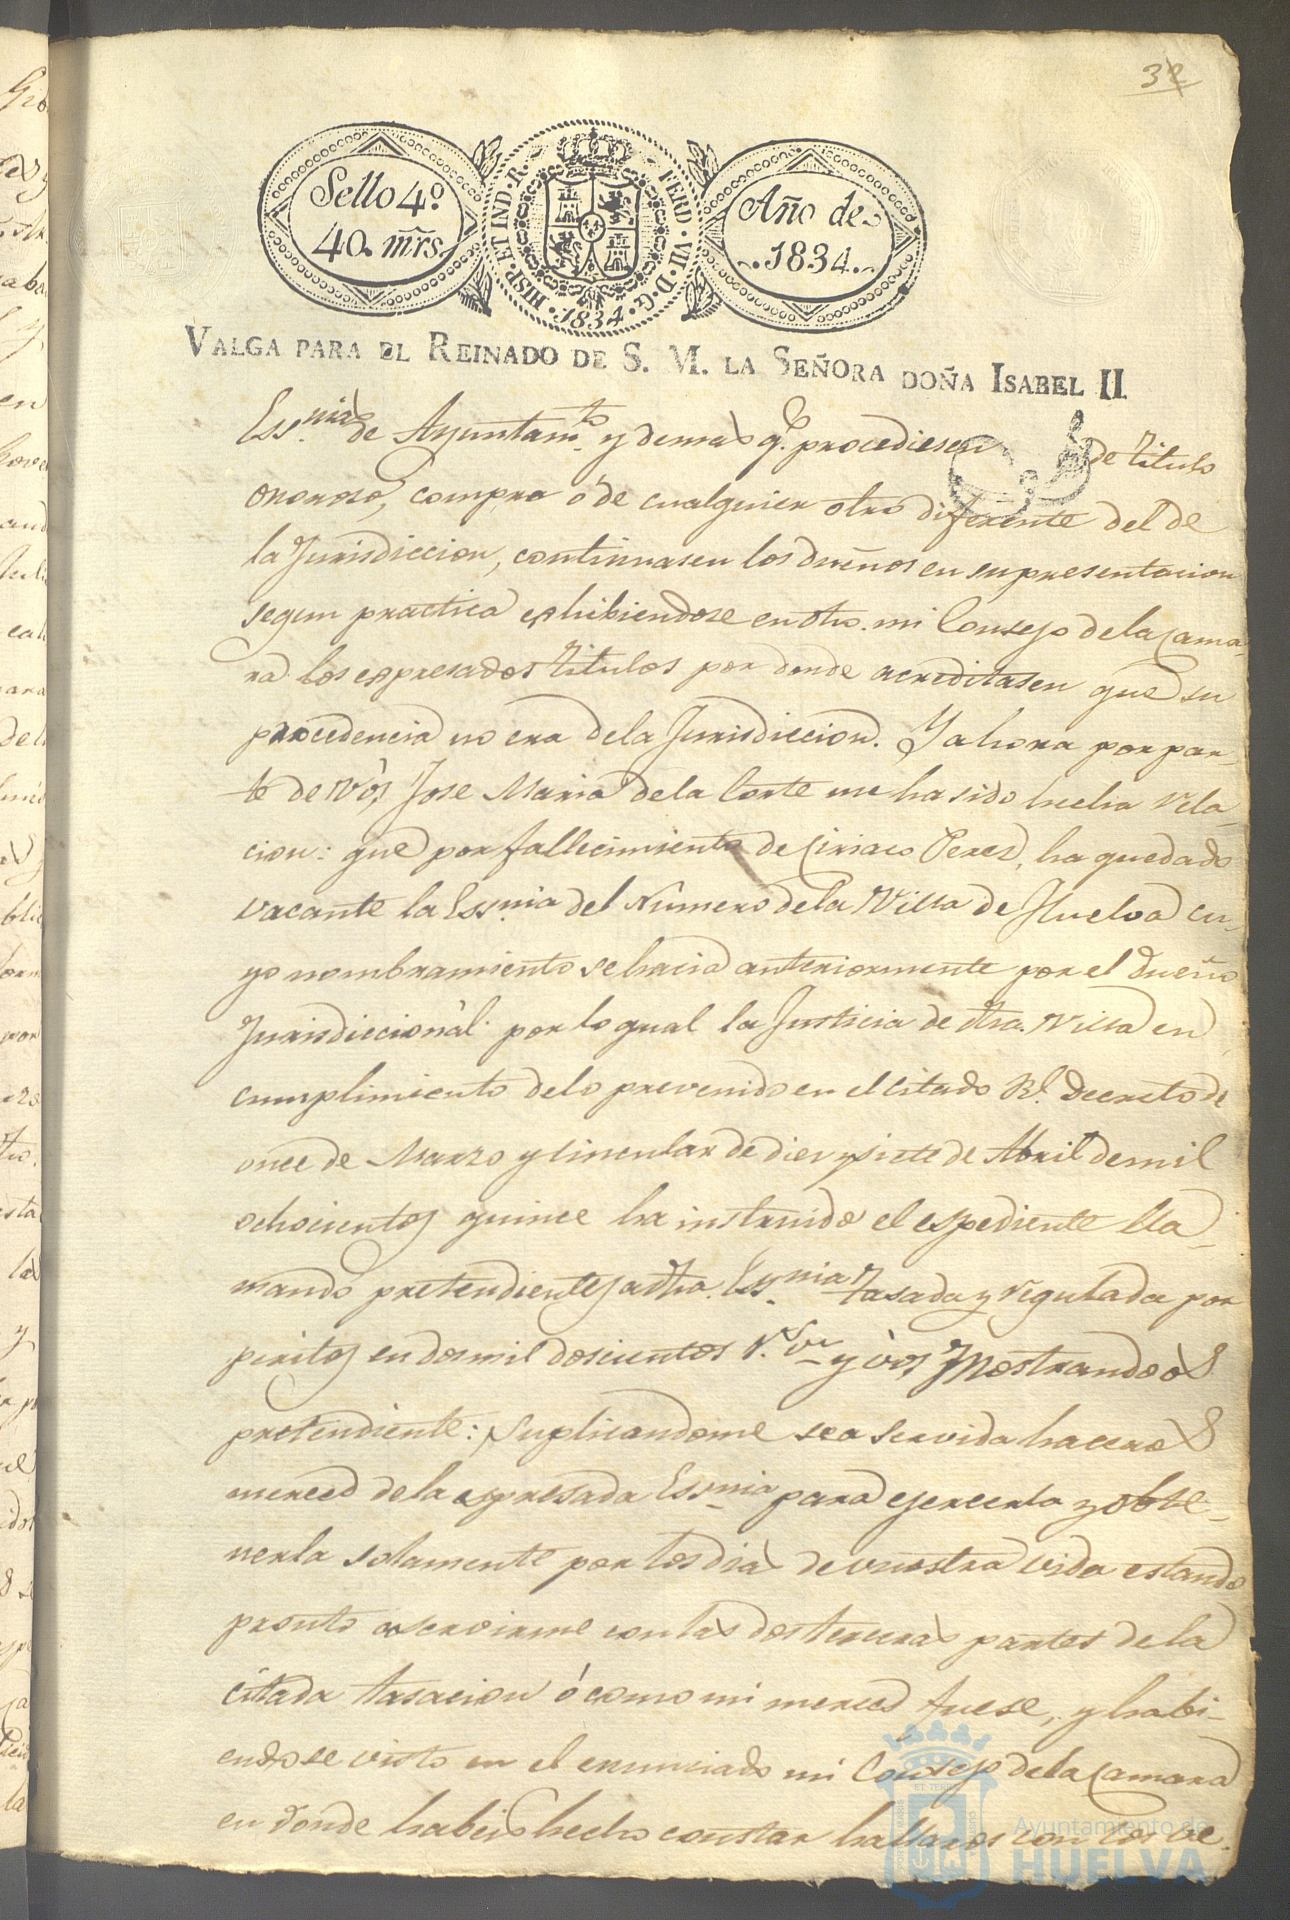 32
Sello 4º
40. mrs
HISP. ET IND. R.
FERD. VII. D. G.
.1834.
Año de
.1834.
VALGA PARA EL REINADO DE S. M. LA SEÑORA DOÑA ISABEL II.
Essnias de Ayuntamto y demas qe procediesen de titulo
oneroso, compra ó de cualquier otro diferente del de
la Jurisdiccion, continuasen los dueños en su presentacion
segun practica exhibiendose en dho. mi Consejo de la Cama-
ra los expresados titulos por donde acreditasen que su
procedencia no era de la Jurisdiccion. Y ahora por par-
te de vós José Maria de la Corte me ha sido hecha rela-
cion: que por fallecimiento de Ciriaco Perez, ha quedado
vacante la Essnia del Número de la Villa de Huelva cu-
yo nombramiento se hacia anteriormente por el dueño
Jurisdiccional. por lo qual la Justicia de dha. Villa en
cumplimiento de lo prevenido en el citado Rl. Decreto de
once de Marzo y Circular de diez y siete de Abril de mil
ochocientos quince ha instruido el espediente lla-
mando pretendientes a dha. Essnia tasada y regulada por
peritos en dos mil doscientos rs. vn y vós mostrandoos
pretendiente: Suplicandome sea servida haceros
merced de la espresada Essnia para ejercerla y obte-
nerla solamente por los dias de vuestra vida estando
pronto a servirme con las dos terceras partes de la
citada tasacion ó como mi merced fuese, y habi-
endose visto en el enunciado mi Consejo de la Camara
en donde habeis hecho constar hallaros con los re-
Ayuntamiento de
HUELVA